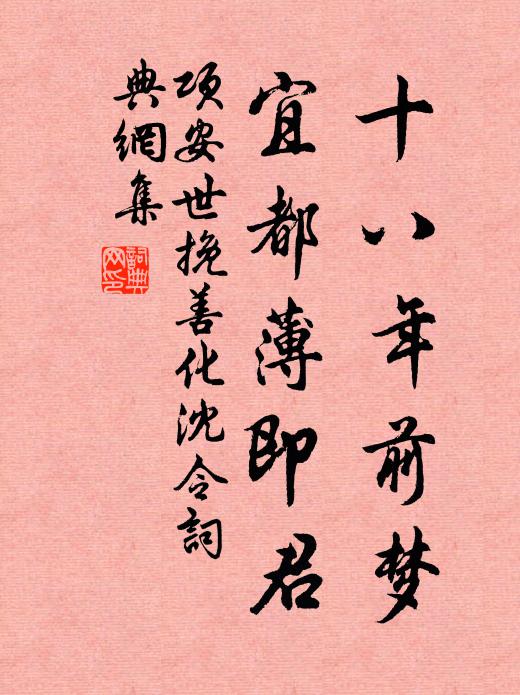 十八年前梦
宜都薄即君
项安世挽善化沈令詞
典網集
詞典网印